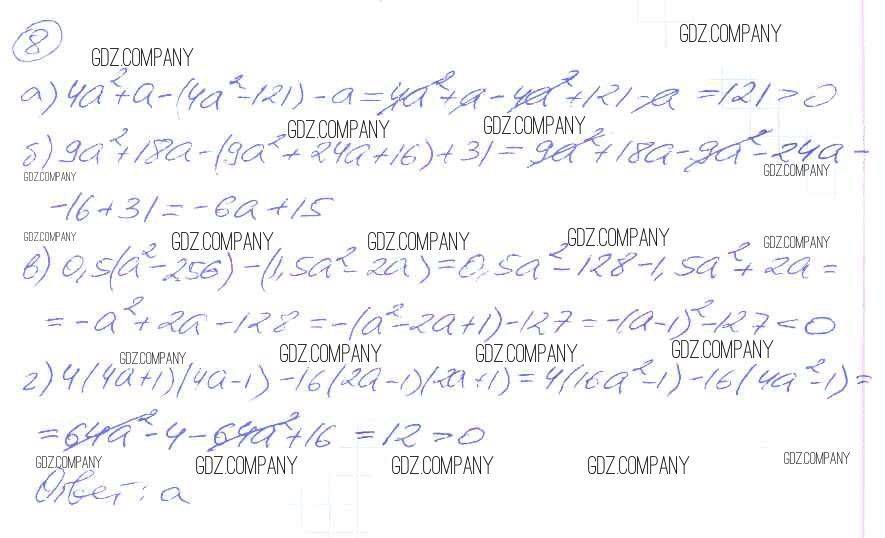 8
GDZ.COMPANY GDZ.COMPANY
а) 4a²+a-(4a²-121)-a=4a²+a-4a²+121-a=121>0
GDZ.COMPANY GDZ.COMPANY
б) 9a²+18a-(9a²+24a+16)+31=9a²+18a-9a²-24a-
GDZ.COMPANY GDZ.COMPANY
-16+31=-6a+15
GDZ.COMPANY GDZ.COMPANY GDZ.COMPANY GDZ.COMPANY GDZ.COMPANY
в) 0,5(a²-256)-(1,5a²-2a)=0,5a²-128-1,5a²+2a=
=-a²+2a-128=-(a²-2a+1)-127=-(a-1)²-127<0
GDZ.COMPANY GDZ.COMPANY GDZ.COMPANY GDZ.COMPANY
г) 4(4a+1)(4a-1)-16(2a-1)(2a+1)=4(16a²-1)-16(4a²-1)=
=64a²-4-64a²+16=12>0
GDZ.COMPANY GDZ.COMPANY GDZ.COMPANY GDZ.COMPANY GDZ.COMPANY
Ответ: а